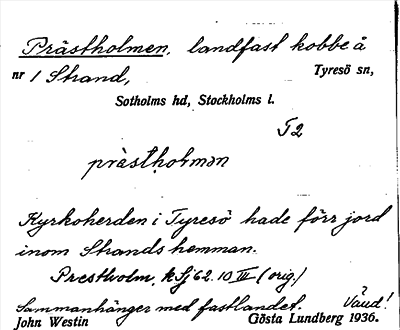 Prästholmen, landfast kobbe å
nr 1 Strand, Tyresö sn,
Sotholms hd, Stockholms l.
T2
prästholmən
Kyrkoherden i Tyresö hade förr jord
inom Strands hemman.
Prestholm, k Sj 62. 10 III (orig.)
Sammanhänger med fastlandet.
John Westin Gösta Lundberg 1936.